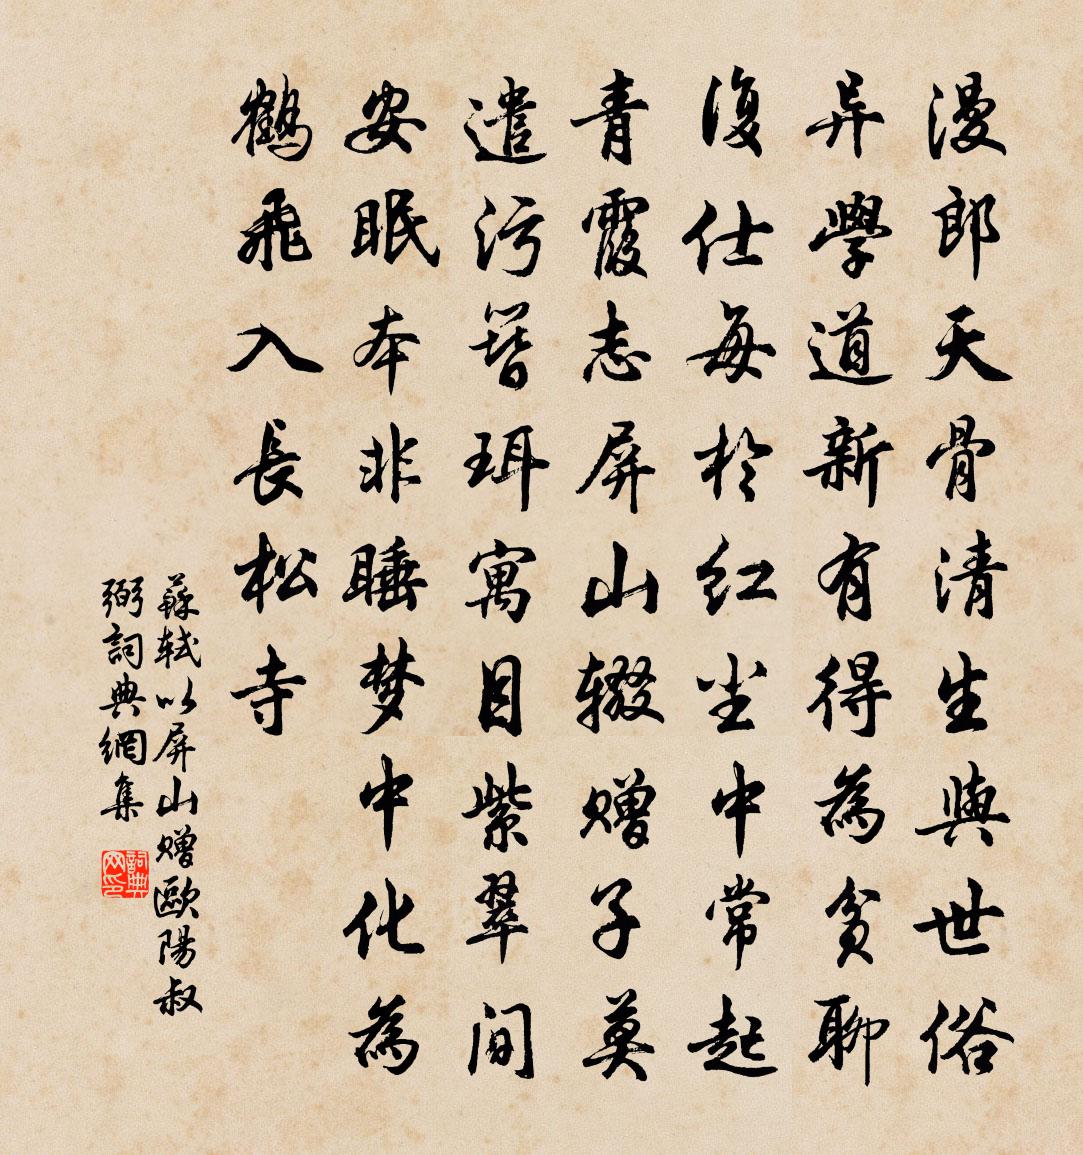 漫郎天骨清生與世俗
异學道新有得為貧聊
復仕每於红尘中常起
青霞志屏山辍赠子莫
遣污簪珥寓目紫翠间
安眠本非睡梦中化為
鶴飛入長松寺
蘇軾以屏山赠歐陽叔
弼詞典網集
詞典网印